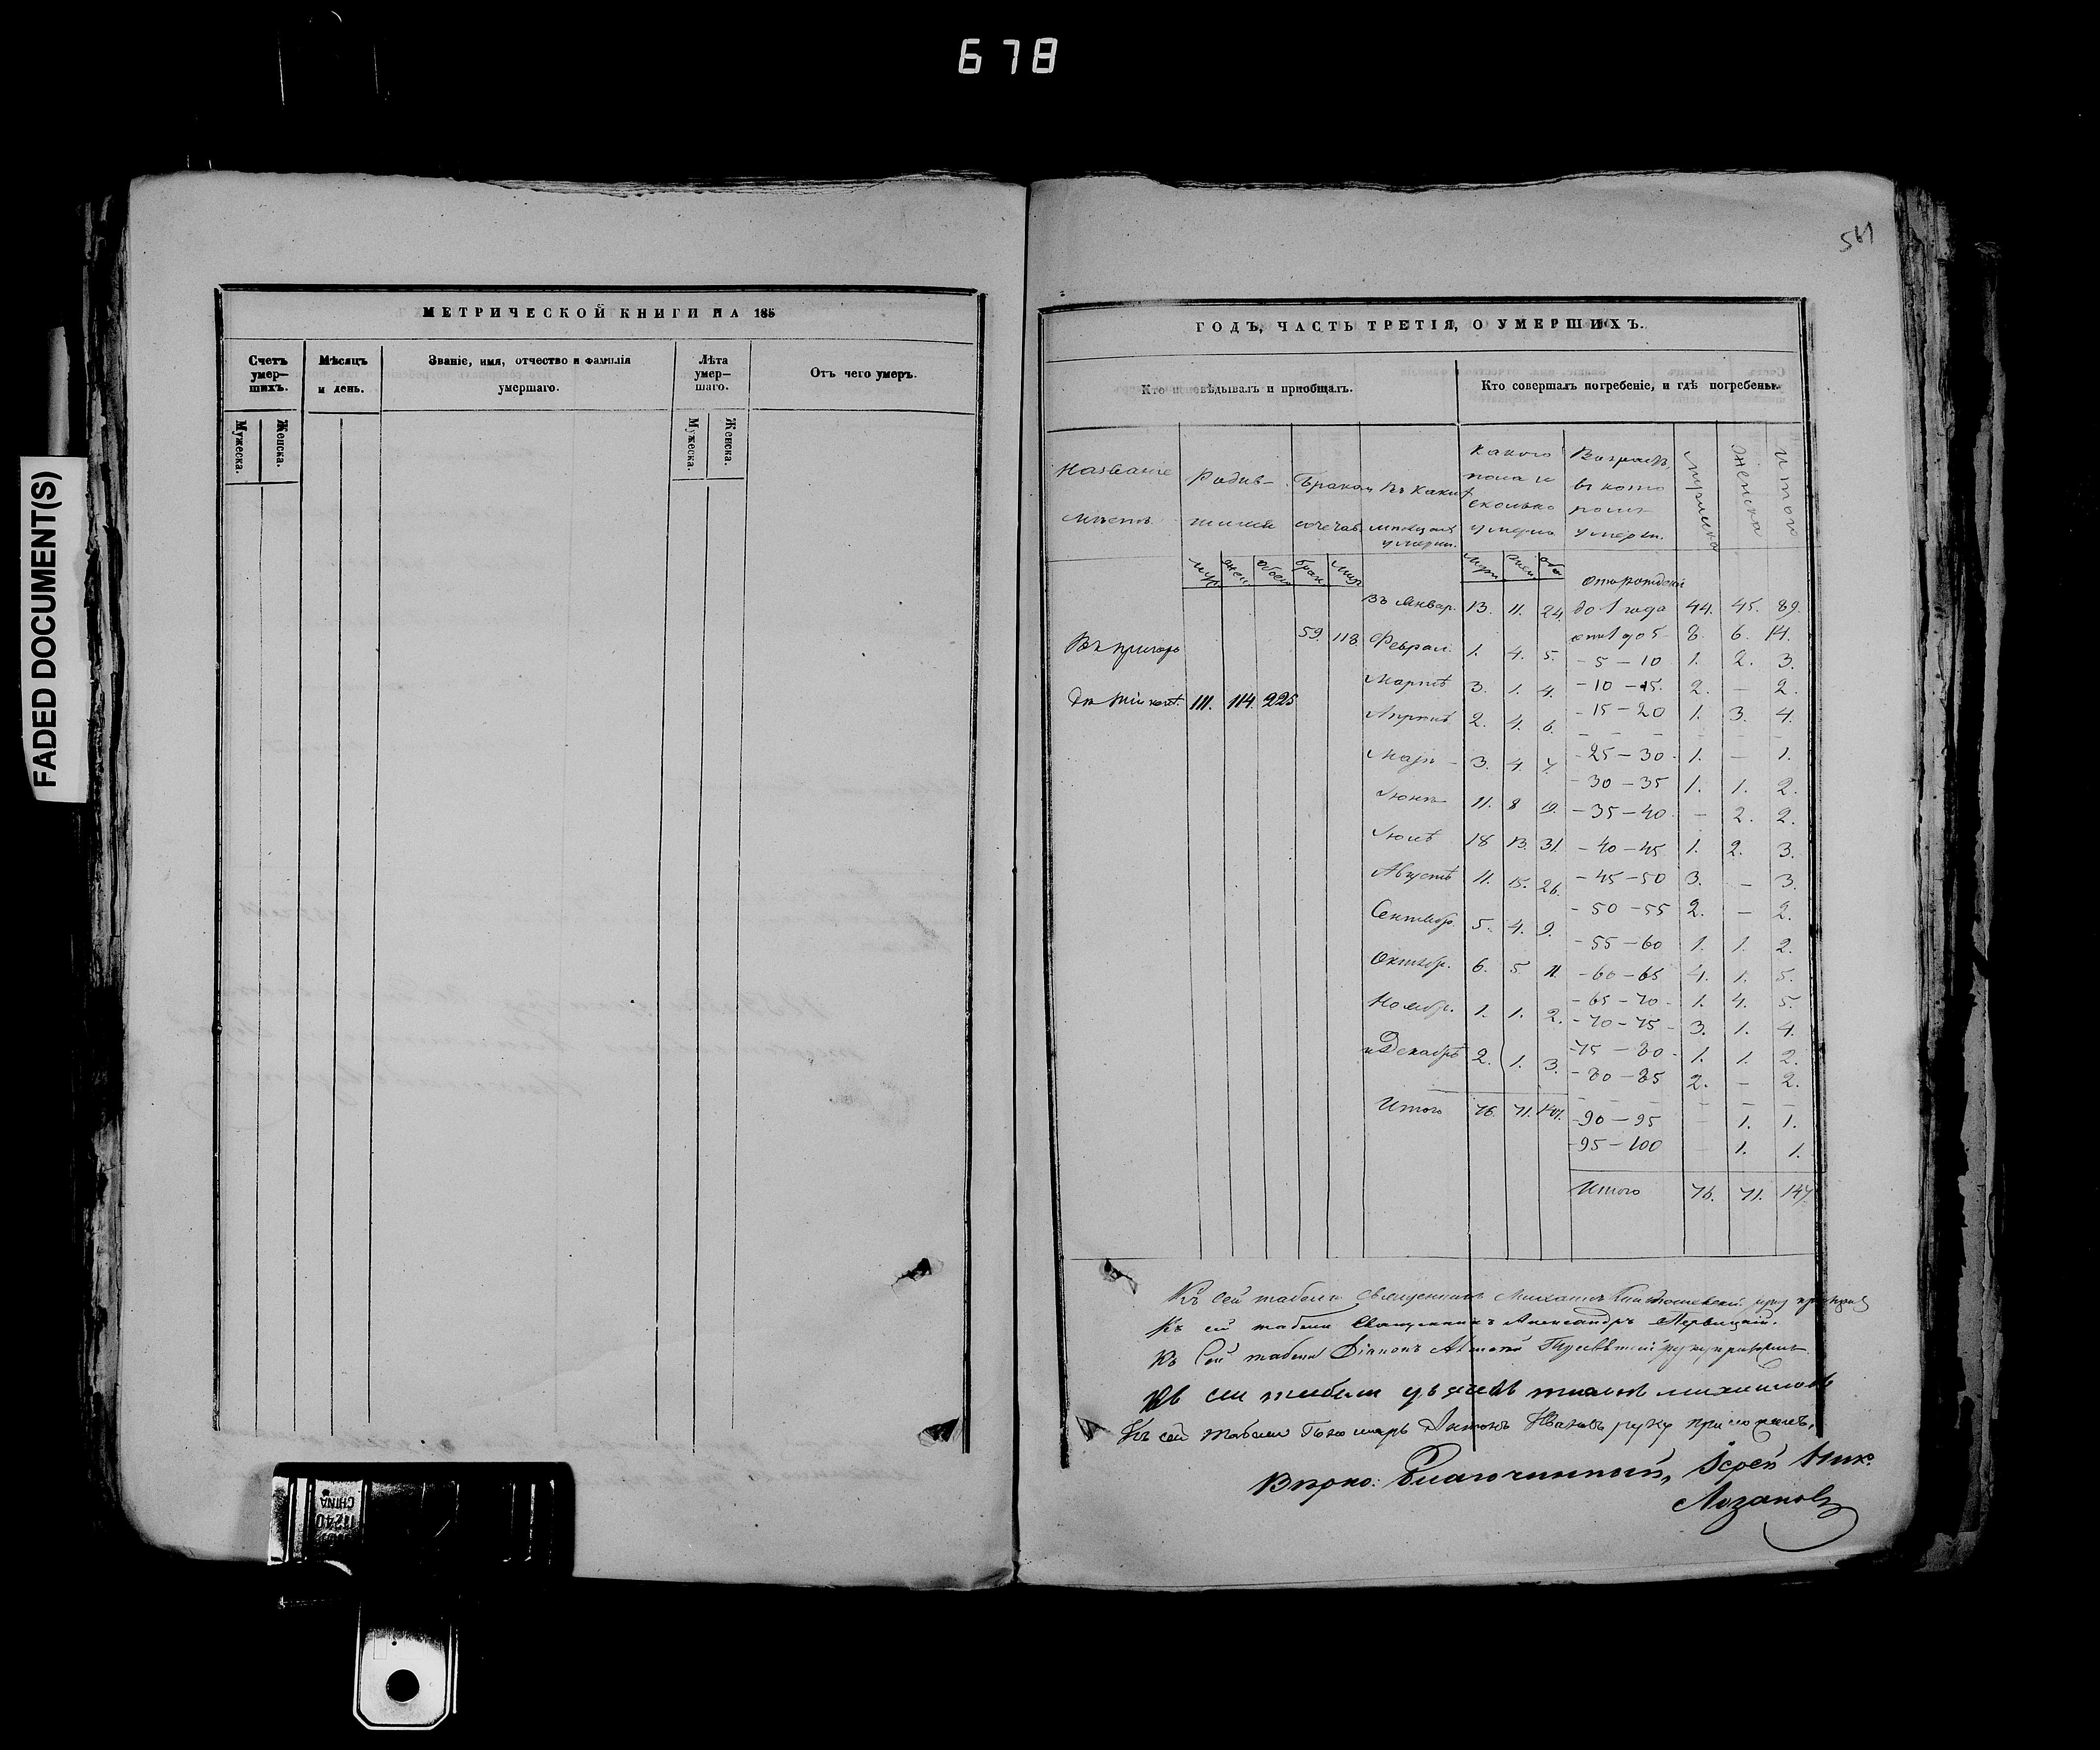 678
FADED DOCUMENT(S)
МЕТРИЧЕСКОЙ КНИГИ НА 185
Счетъ умер—шихъ.
Мѣсяцъ и день.
Званіе, имя, отчество и фамилія умершаго.
Лѣта умер—шаго.
Отъ чего умеръ.
Мужеска.
Женска.
Мужеска.
Женска.
561
ГОДЪ, ЧАСТЬ ТРЕТІЯ, О УМЕРШИХЪ.
Кто исповѣдывалъ и пріобщалъ.
Кто совершалъ погребеніе, и гдѣ погребены.
Названіе мѣстъ.
Родив-шихся
Бракомъ сочетав.
Въ какихъ мѣсяцахъ умерли.
Какого пола и сколько умерло
Возрастъ, въ кото
умерли.
мужеска
женска
итого
муж. жен. обоего брак. лиц. муж. жен. обо.
111. 114. 225
59. 118.
Въ Январ. 13. 11. 24.
Феврал. 1. 4. 5.
Мартѣ 3. 1. 4.
Апрѣлѣ 2. 4. 6.
Маѣ 3. 4. 7.
Іюнѣ 11. 8 19.
Іюлѣ 18 13. 31.
Августѣ 11. 15. 26.
Сентябр. 5. 4. 9.
Октябр. 6. 5. 11.
Ноябр. 1. 1. 2.
и Декабрѣ 2. 1. 3.
Итого 76. 71. 147.
Отъ рожденія
до 1 года 44. 45. 89.
отъ 1 до 5 8. 6. 14.
– 5 – 10 1. 2. 3.
– 10 – 15. 2. – 2.
– 15 – 20 1. 3. 4.
– – – – – –
– 25 – 30 1. – 1.
– 30 – 35 1. 1. 2.
– 35 – 40 – 2. 2.
– 40 – 45 1. 2. 3.
– 45 – 50 3. – 3.
– 50 – 55 2. – 2.
– 55 – 60 1. 1. 2.
– 60 – 65 4. 1. 5.
– 65 – 70 1. 4. 5.
– 70 – 75 3. 1. 4.
– 75 – 80 1. 1. 2.
– 80 – 85 2. – 2.
– – – – – –
– 90 – 95 – 1. 1.
– 95 – 100 – 1. 1.
Итого 76. 71. 147.
Къ сей табели Священникъ Михаилъ
Къ сей табели Священникъ Александръ
Къ сей табели Діаконъ
Къ сей табели
Къ сей табели Пономарь Антонъ Ивановъ руку приложилъ.
Вѣрно: Благочинный, Іерей Ник.
Лозановъ
CHINA
11240